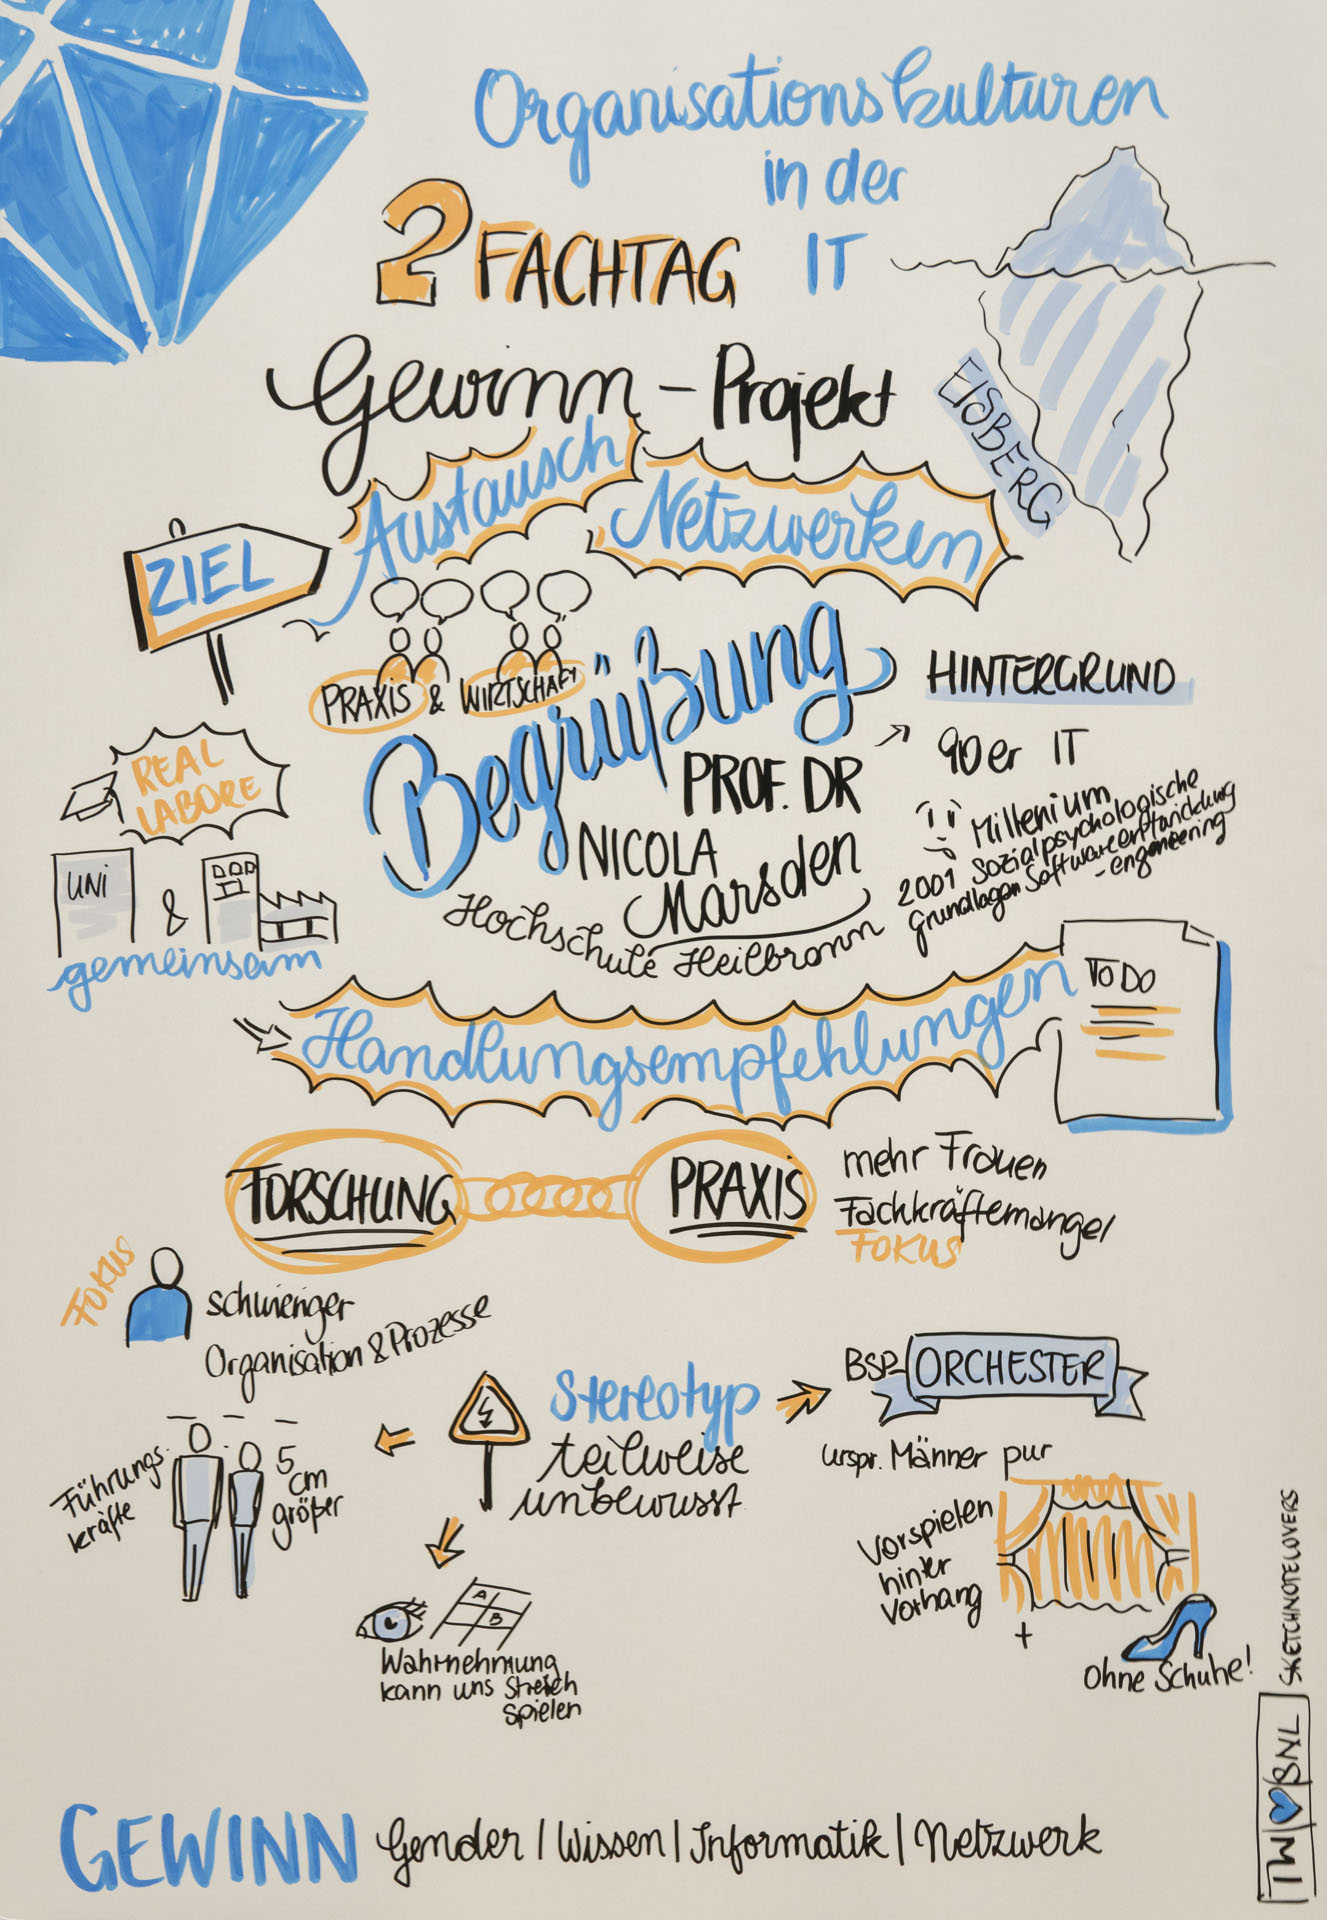 Organisationskulturen
in der
IT
2 FACHTAG
Gewinn - Projekt
EISBERG
Austausch
Netzwerken
ZIEL
PRAXIS & WIRTSCHAFT
Begrüßung
PROF. DR
NICOLA
Marsden
Hochschule Heilbronn
HINTERGRUND
90er IT
Millenium
2001 Sozialpsychologische
Grundlagen Softwareentwicklung
- engeneering
REAL
LABORE
UNI
&
gemeinsam
Handlungsempfehlungen
TO DO
FORSCHUNG
PRAXIS
mehr Frauen
Fachkräftemangel
FOKUS
FOKUS
schwieriger
Organisation & Prozesse
Stereotyp
teilweise
unbewusst
Führungs-
kräfte
5
cm
größer
A
B
Wahrnehmung
kann uns Streich
spielen
BSP. ORCHESTER
urspr. Männer pur
Vorspielen
hinter
Vorhang
+
Ohne Schuhe!
SKETCHNOTELOVERS
TW BNL
GEWINN Gender | Wissen | Informatik | Netzwerk